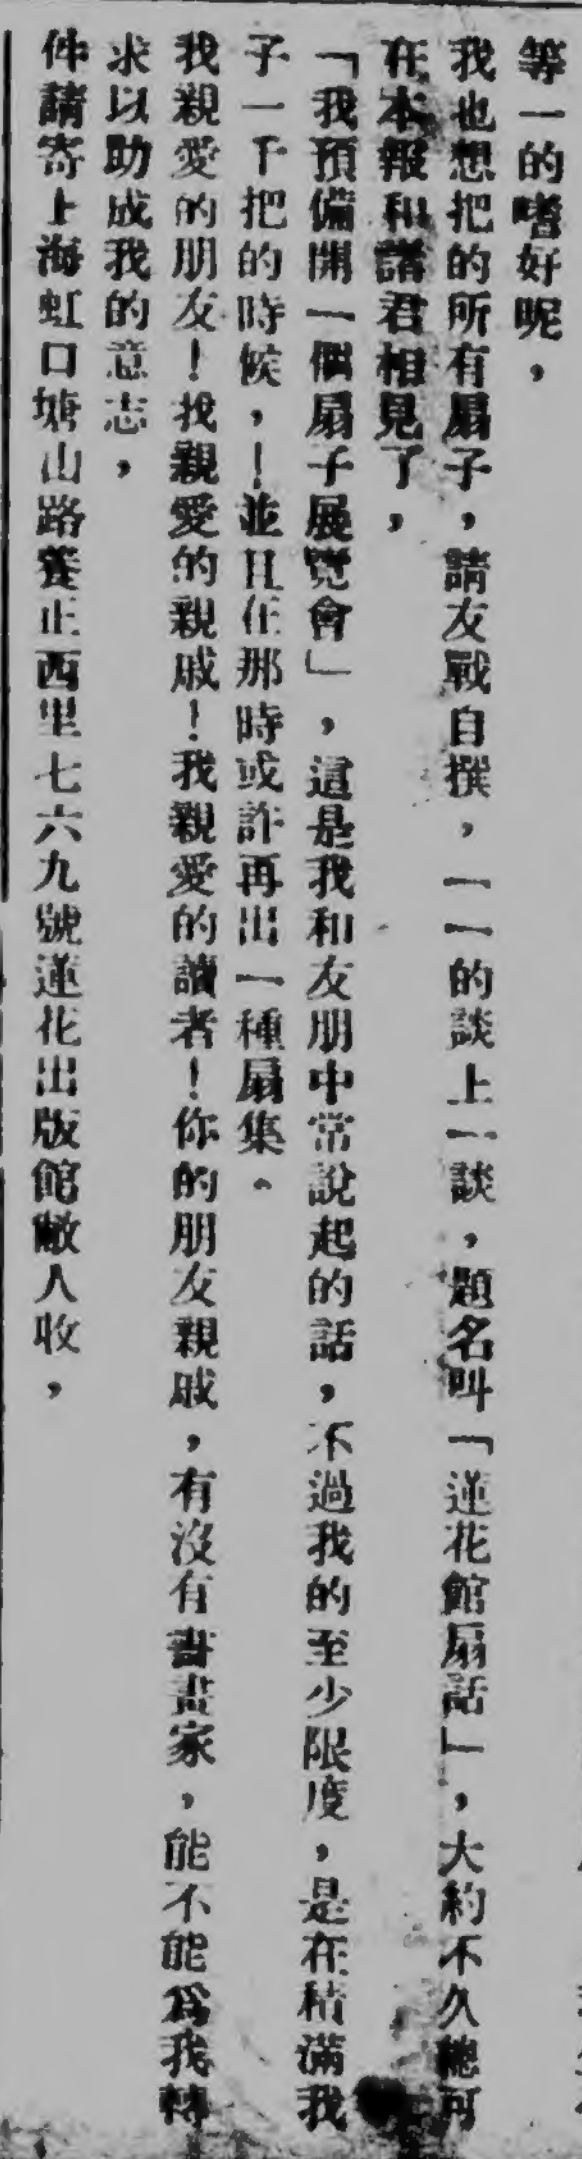 等一的嗜好呢，
我也想把的所有扇子，請友戰自撰，一一的談上一談，題名叫「蓮花館扇話」，大約不久總可
在本報和諸君相見了，
「我預備開一個扇子展覽會」，這是我和友朋中常說起的話，不過我的至少限度，是在積滿我
子一千把的時候，！並且在那時或許再出一種扇集。
我親愛的朋友！我親愛的親戚！我親愛的讀者！你的朋友親戚，有沒有書畫家，能不能爲我轉
求以助成我的意志，
件請寄上海虹口塘山路養正西里七六九號蓮花出版館敝人收，